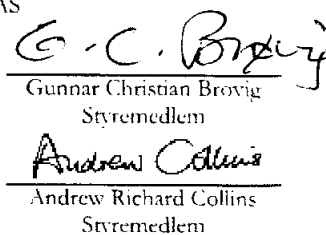 AS
G. C. Brovig
Gunnar Christian Brovig
Styremedlem
Andrew Collins
Andrew Richard Collins
Styremedlem